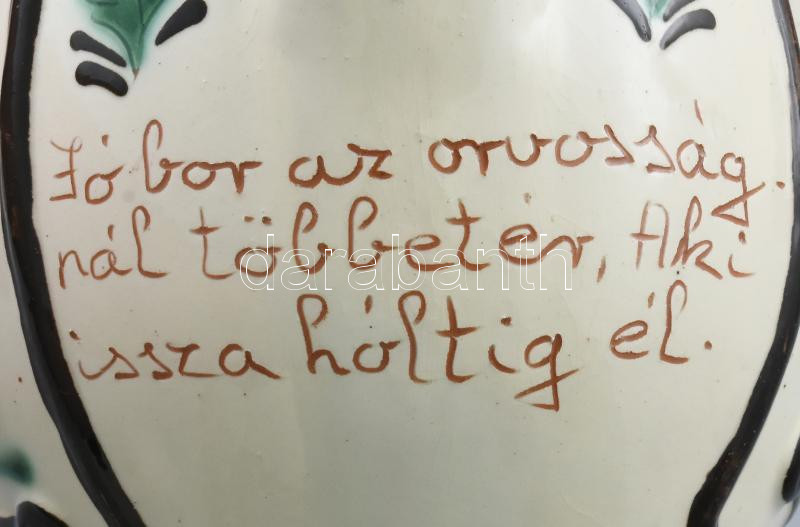 Jó bor az orvosság.
nál többet ér, Aki
issza hóltig él.
darabanth